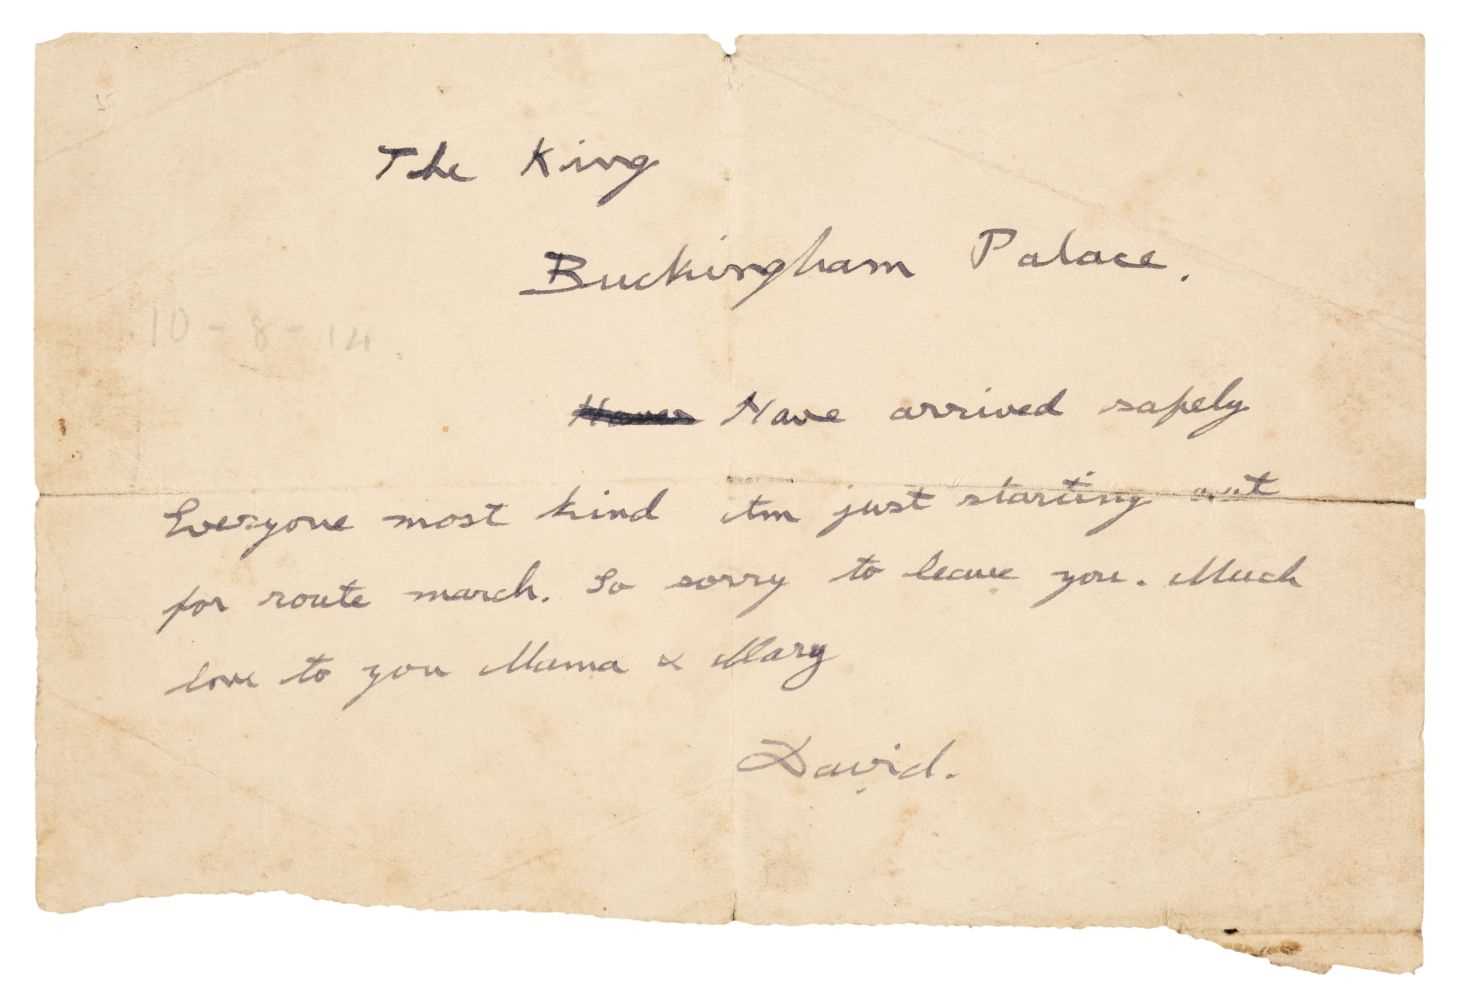 The King
Buckingham Palace.
10-8-14.
Have arrived safely
Everyone most kind Am just starting out
for route march. So sorry to leave you. Much
love to you Mama & Mary
David.